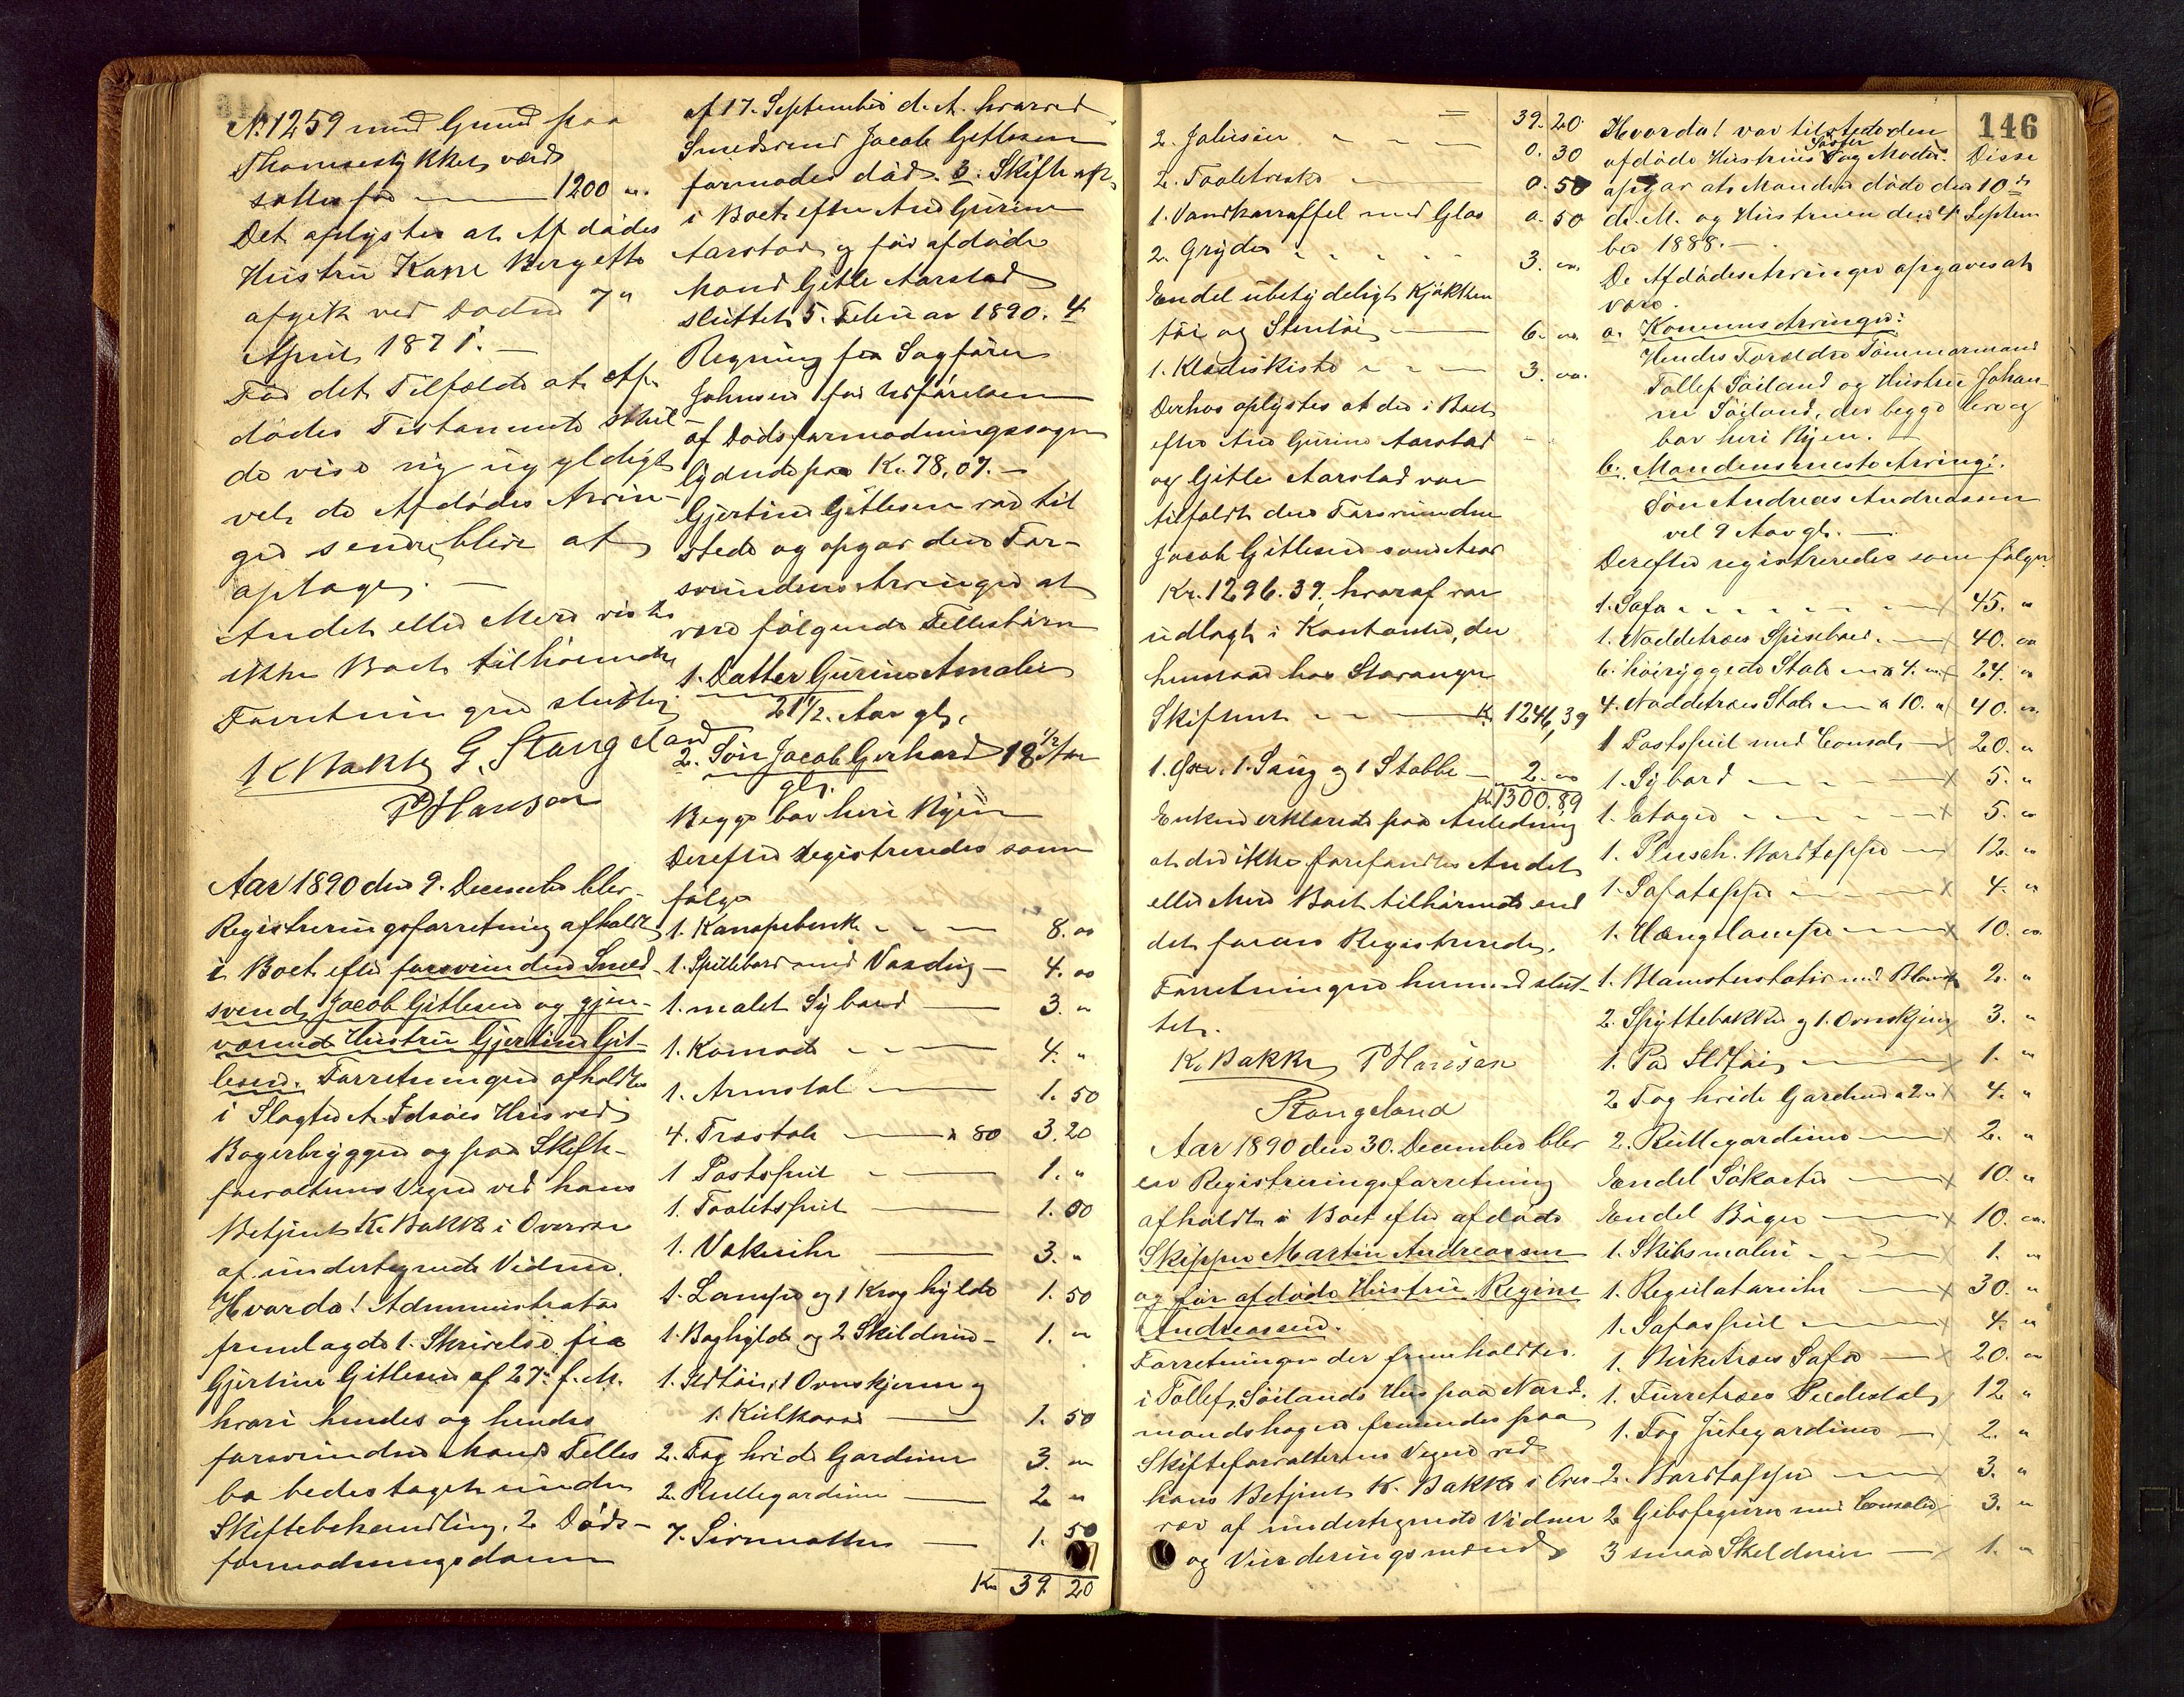 No 1259 med Grund paa
Thomsestykket, værd
sættes for 1200 "
Det oplystes at Afdødes
Hustru Karen Bergette
afgik ved Døden 7"
April 1871.
For det Tilfælde at Af-
dødes Testamente skul-
de vise sig ugyldigt
vil de Afdødes Arvin-
ger senere blive at
optage.
Andet eller Mere vistes
ikke Boet tilhørende
Forretningen sluttet
K Bakke G. Stangeland
P Hansen
Aar 1890 den 9. December blev
Registreringsforretning afholdt
i Boet efter forsvunden Smed-
svend Jacob Gitlesen og gjen-
værende Hustru Gjertine Git-
lesen. Forretningen afholdtes
i Slagter A. Idsøes Hus ved
Bagerbryggen og paa Skifte-
forvalterens Vegne ved hans
Betjent K. Bakke i Overvær
af undertegnede Vidner.
Hvorda! Administrator
fremlagde 1. Skrivelse fra
Gjertine Gitlesen af 27" f. M.
hvori hendes og hendes
forsvundne Mands Fælles
bo bedes taget under
Skiftebehandling. 2 Døds-
formodningsdom
af 17. September d. A. hvorved
Smedsvend Jacob Gitlesen
formodes død. 3. Skifte
i Boet efter Ane Gurine
Aarstad og før afdøde
Mand Gitle Aarstad
sluttet 5. Februar 1890. 4
Regning fra Sagfører
Johnsen for Udførelsen
af Dødsformodningssagen
lydende paa Kr. 78,07.
Gjertine Gitlesen var til
stede og opgav den For-
svundnes Arvinger at
være følgende Fællesbørn
1. Datter Gurine Amalie
21 1/2. Aar gl.
2. Søn Jacob Gerhard 18 1/2 Aar
gl.
Begge bor heri Byen
Derefter registreredes som
følger
1. Kanapebenk 8. 00
1. Spillebord med Voxdug 4. 00
1. malet Sybord 3. "
1. Komode 4. "
1. Armstol 1. 50
4. Træstole a 80 3. 20
1 Postspeil 1. "
1. Toaletspeil 1. 00
1. Vækeruhr 3. "
1. Lampe og 1 Kroghylde 1. 50
1. Boghylde og 2 Skilderier 1. "
1. Ildtøi, 1 Ovnskjerm og
1. Kulkasse 1. 50
2. Fag hvide Gardiner 3. "
2. Rullegardiner 2 "
7. Sivmatter 1. 50
Kr 39 20
39. 20
2. Jalusier 0. 30
2. Toaletæske 0. 50
1. Vandkarraffel med Glas 0. 50
2. Gryder 3. "
Endel ubetydeligt Kjøkken
tøi og Stentøi 6. "
1. Klædeskiste 3. "
Derhos oplystes at der i Boet
efter Ane Gurine Aarstad
og Gitle Aarstad var
tilfaldt den Forsvundne
Jacob Gitlesen som Arv
Kr. 1296. 39, hvoraf var
udlagt i Kontanter, der
henstaar hos Stavanger
Skifteret Kr 1246,39
1. Øxe, 1. Saug og 1 Stabbe 2. 00
Kr 1300.89
Enken erklærede paa Anledning
at der ikke forefandtes Andet
eller Mere Boet tilhørende end
det foran Registrerede.
Forretningen hermed slut-
tet.
K. Bakke P Hansen
Stangeland
Aar 1890 den 30. December blev
en Registreringsforretning
afholdt i Boet efter afdøde
Skipper Martin Andreassen
og før afdøde Hustru Regine
Andreassen.
Forretningen der fremholdtes
i Tollef Søilands Hus paa Nord-
mandshagen fremmedes paa
Skifteforvalterens Vegne ved
hans Betjent K. Bakke i Over
vær af undertegnede Vidner
og Vurderingsmænd
146
Hvorda! var tilstede den
afdøde Hustrues Søster og Moder. Disse
opgav at Manden døde den 10de
d. M. og Hustruen den 4 Septem
ber 1888.
De Afdødes Arvinger opgaves at
være.
a. Konens Arvinger:
Hendes Forældre Tømmermand
Tollef Søiland og Hustru Johan-
ne Søiland, der begge lever og
bor heri Byen.
b. Mandens eneste Arving:
Søn Andreas Andreassen
vel 9 Aar gl.
Derefter registreredes som følger
1. Sofa 45. "
1. Nøddetræs Spisebord 40. 00
6. høiryggede Stole a 4. " 24. "
4. Nøddetræs Stole a 10. " 40. "
1 Postspeil med Consol 20. "
1. Sybord 5. "
1. Etager 5. "
1. Plusch. Bordteppe 12. "
1. Sofateppe 4. "
1. Hængelampe 10. "
1. Blomsterstativ med Blomster 2. "
2. Spyttebakker og 1. Ovnskjerm 3. "
1. Par Ildtøi 1. "
2 Fag hvide Gardiner a 2 " 4. "
2. Rullegardiner 2. "
Endel Søkarter 10. "
Endel Bøger 10. "
1. Skibsmaleri 1. "
1. Regulatoruhr 30. "
1. Sofaspeil 4. "
1. Birketræs Sofa 20. "
1. Furretræs Piedestal 12 "
1. Fag Jutegardiner 2. "
2. Bordtepper 3. "
2 Gibsfigurer med Consoler 3. "
3 smaa Skilderier 1. "